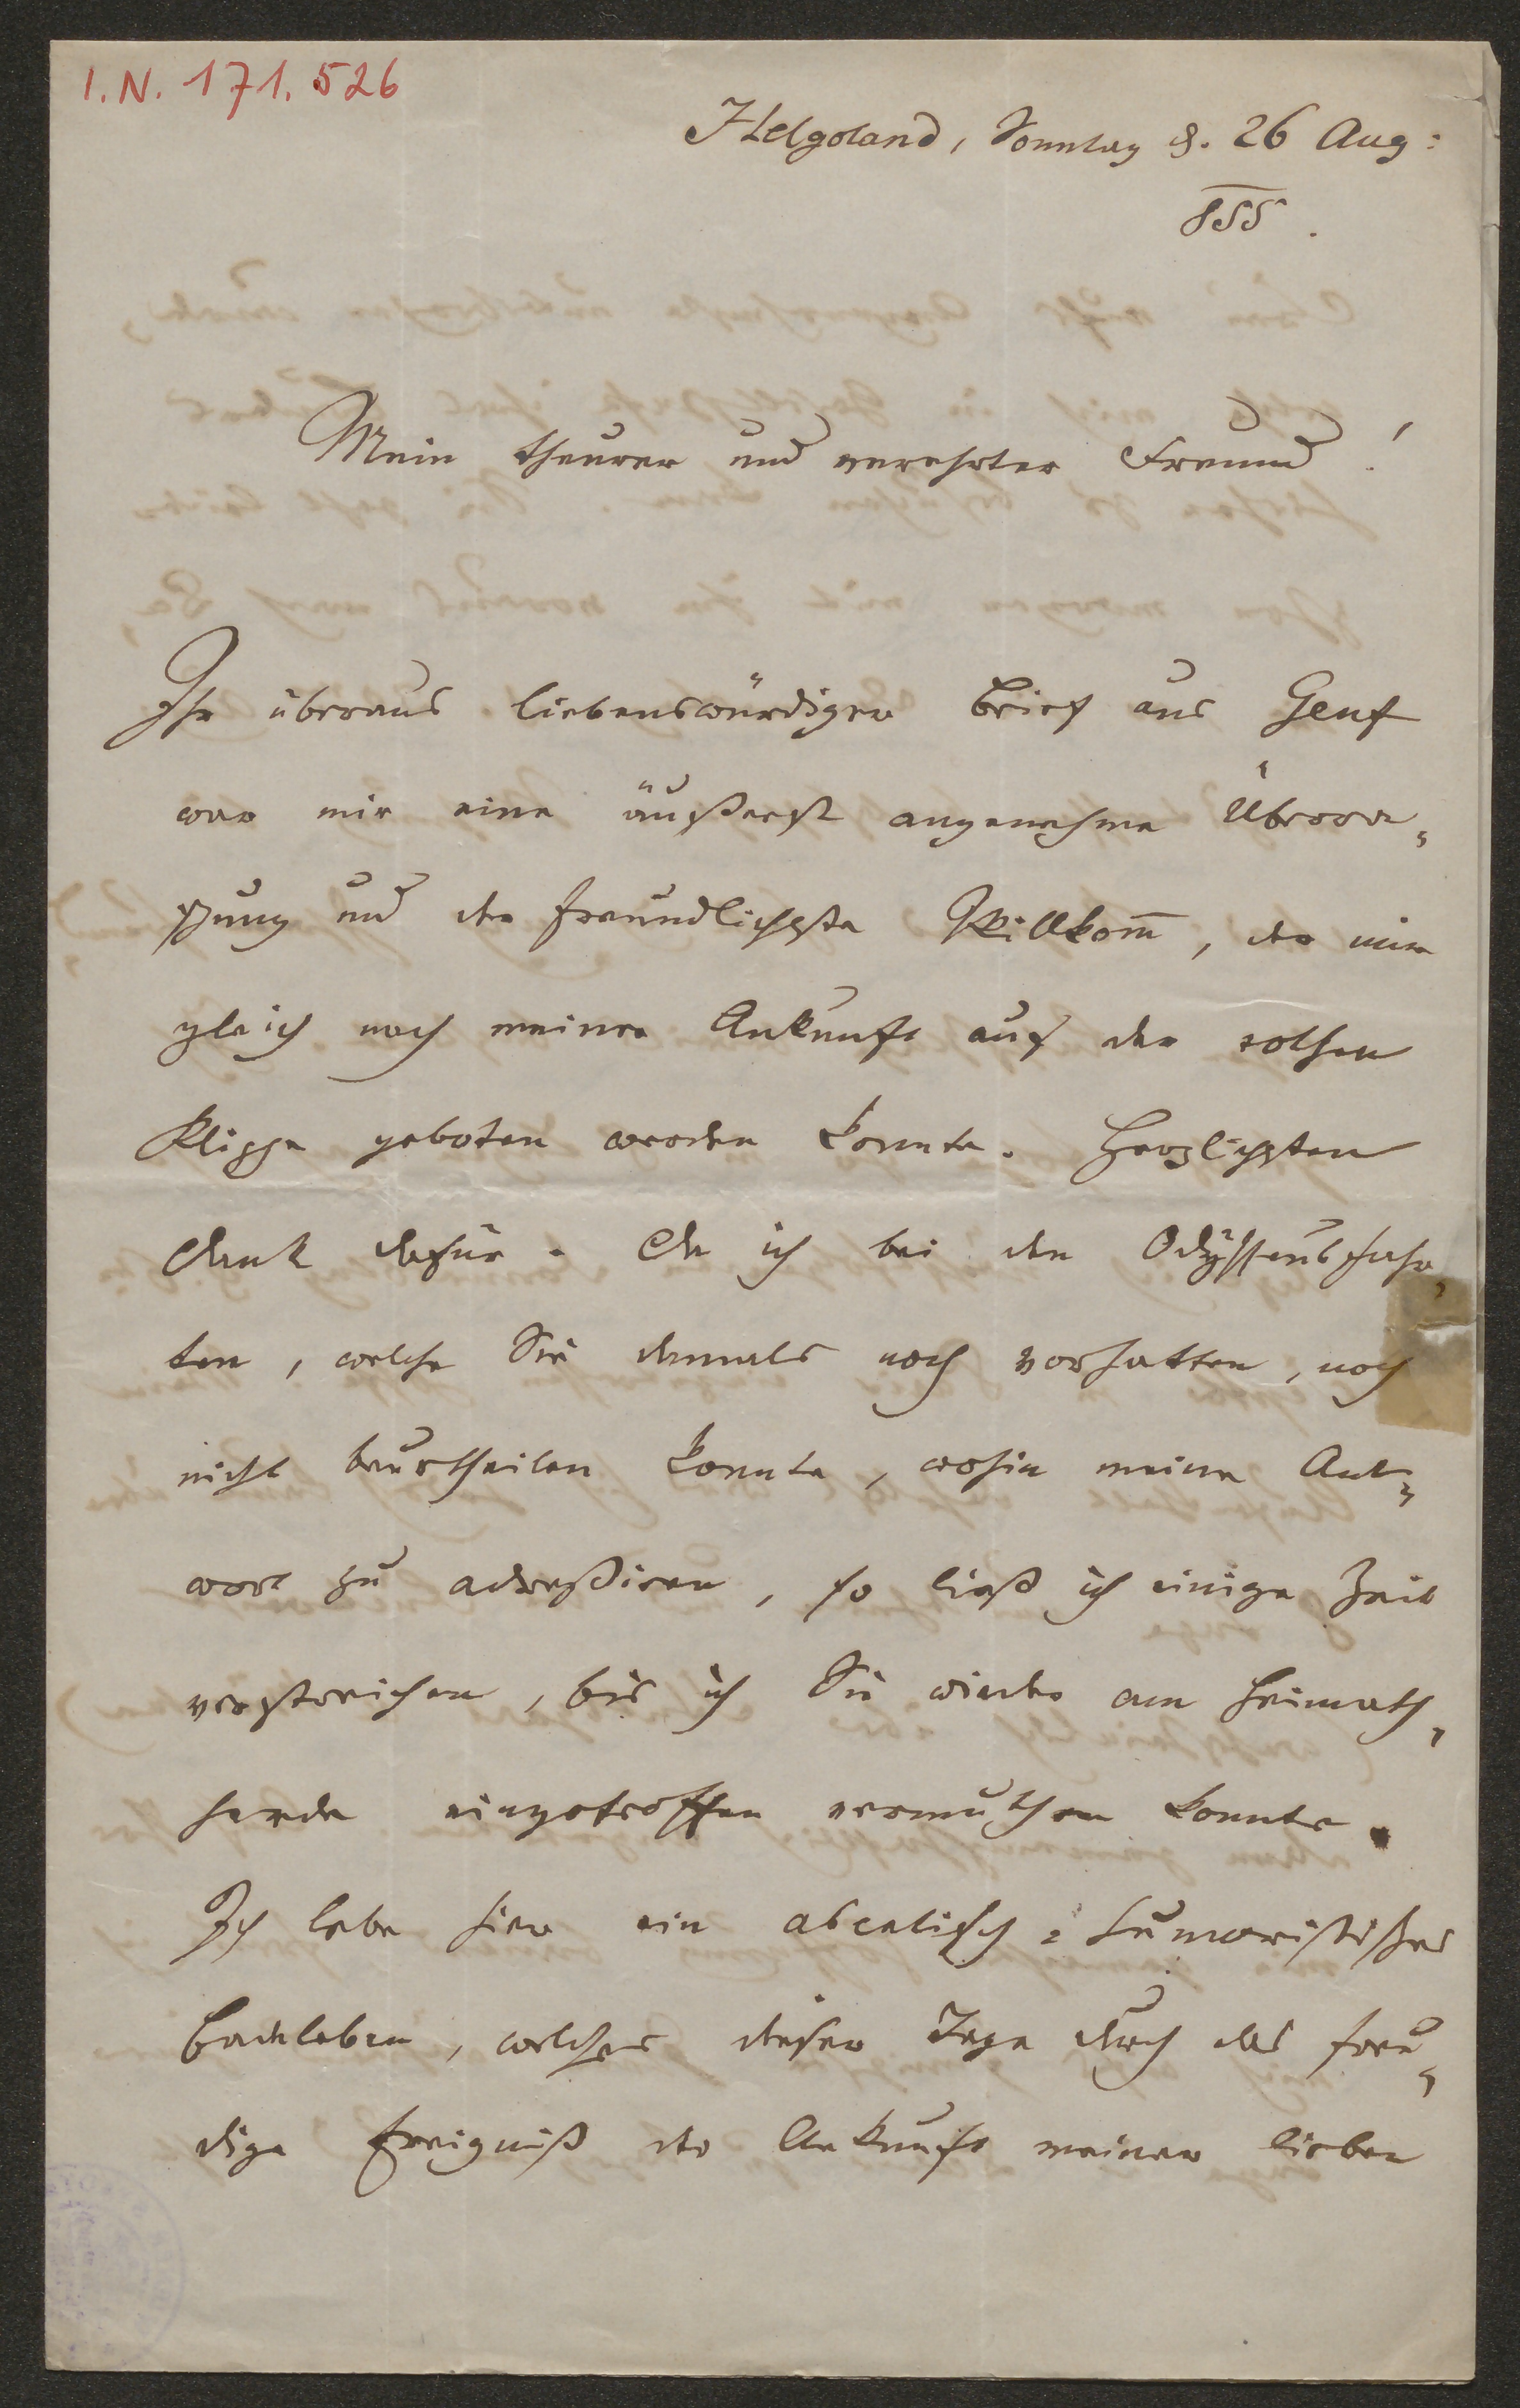 I.N. 171.526
Helgoland, Sonntag d. 26 Aug:
855.
Mein theurer und verehrter Freund!
Ihr überaus liebenswürdiger Brief aus Genf
war mir eine äußerst angenehme Überra-
schung und der freundlichste Willkom̅, der mir
gleich nach meiner Ankunft auf der rothen
Klippe geboten werden konnte. Herzlichsten
Dank dafür. Da ich bei den Odysseusfahr-
ten, welche Sie damals noch vorhatten, noch
nicht beurtheilen konnte, wohin meine Ant-
wort zu adreßiren, so ließ ich einige Zeit
verstreichen, bis ich Sie wieder am Heimath-
herde eingetroffen vermuthen konnte.
Ich lebe hier ein ascetisch-humoristisches
Badeleben, welches dieser Tage durch das freu-
dige Ereigniß der Ankunft meiner lieben